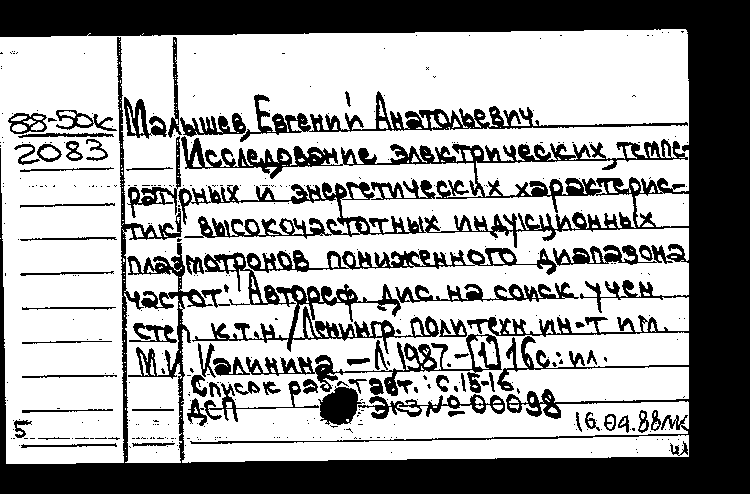 88-50к Малышев, Евгений Анатольевич.
2083 Исследование электрических, темпе-
ратурных и энергетических характерис-
тик высокочастотных индукционных
плазмотронов пониженного диапазона
частот: Автореф. дис. на соиск. учен.
степ. к.т.н. / Ленингр. политехн. ин-т им.
М.И. Калинина. — Л. 1987. - [1] 16 с.: ил.
Список работ авт.: с. 15-16.
ДСП Экз № 00098
5 16.04.88